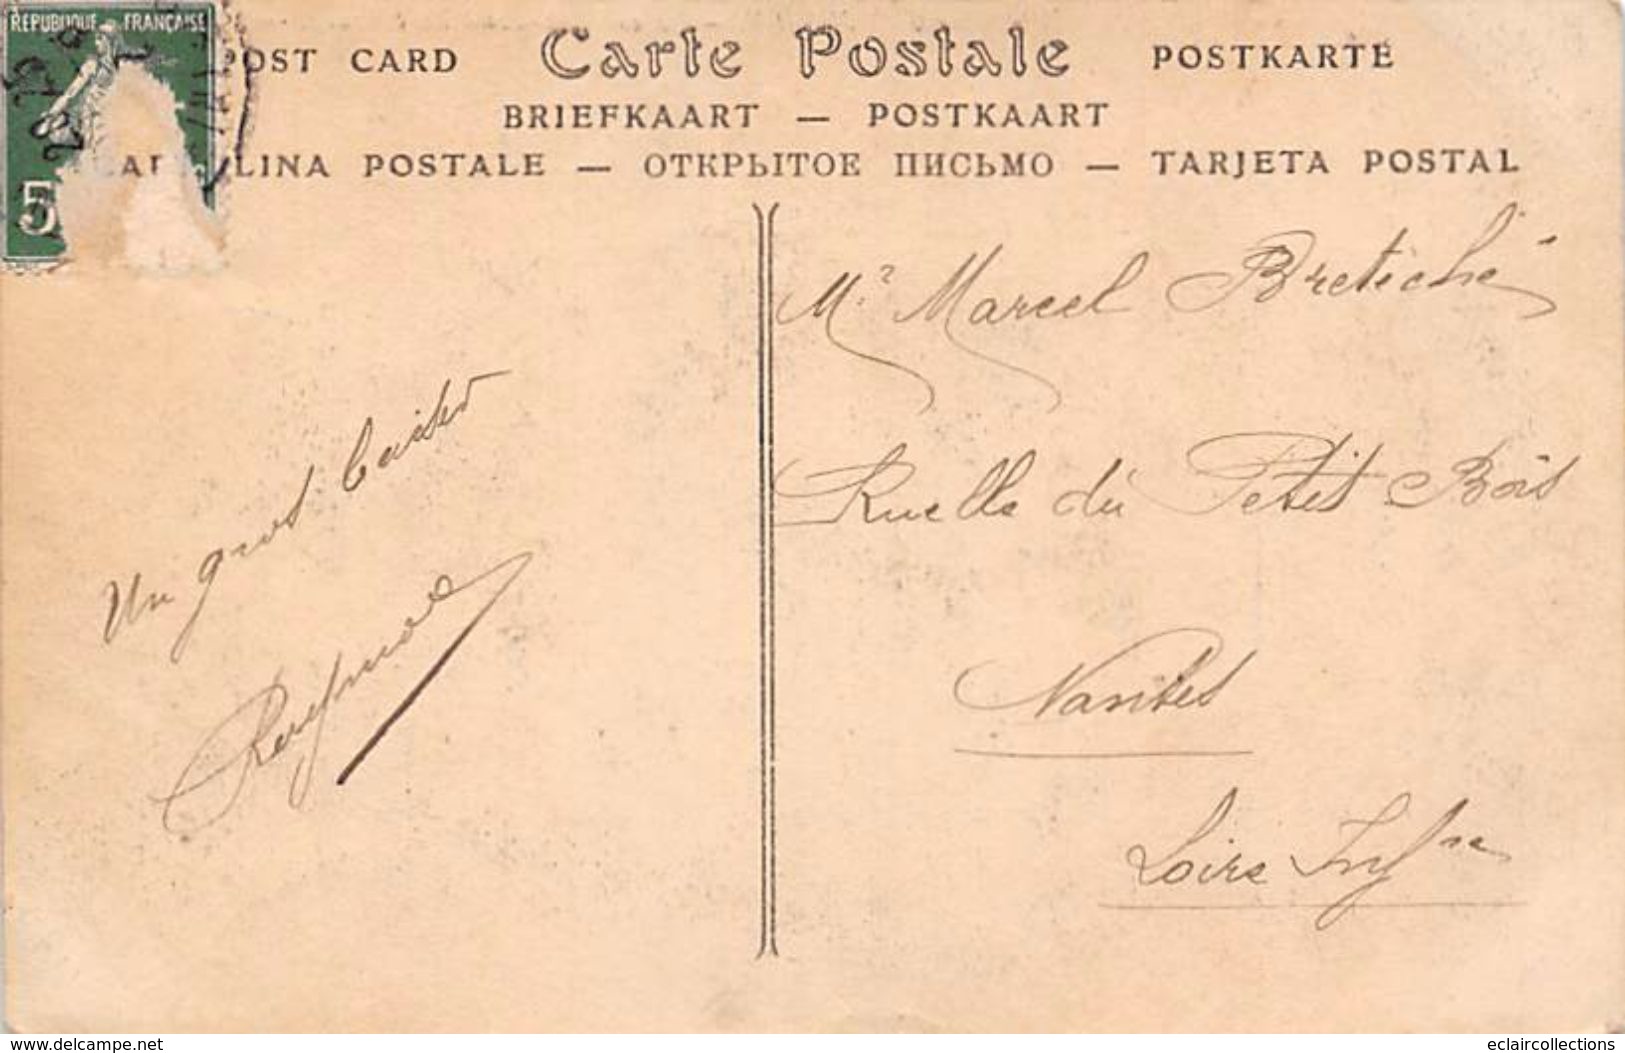 REPUBLIQUE FRANÇAISE
5
POST CARD Carte Postale POSTKARTE
BRIEFKAART — POSTKAART
LINA POSTALE — ОТКРЫТОЕ ПИСЬМО — TARJETA POSTAL
Mr Marcel Bretéché
Ruelle du Petit Bois
Nantes
Loire Infre
Un gros baiser
Raymond
www.delcampe.net
eclaircollections